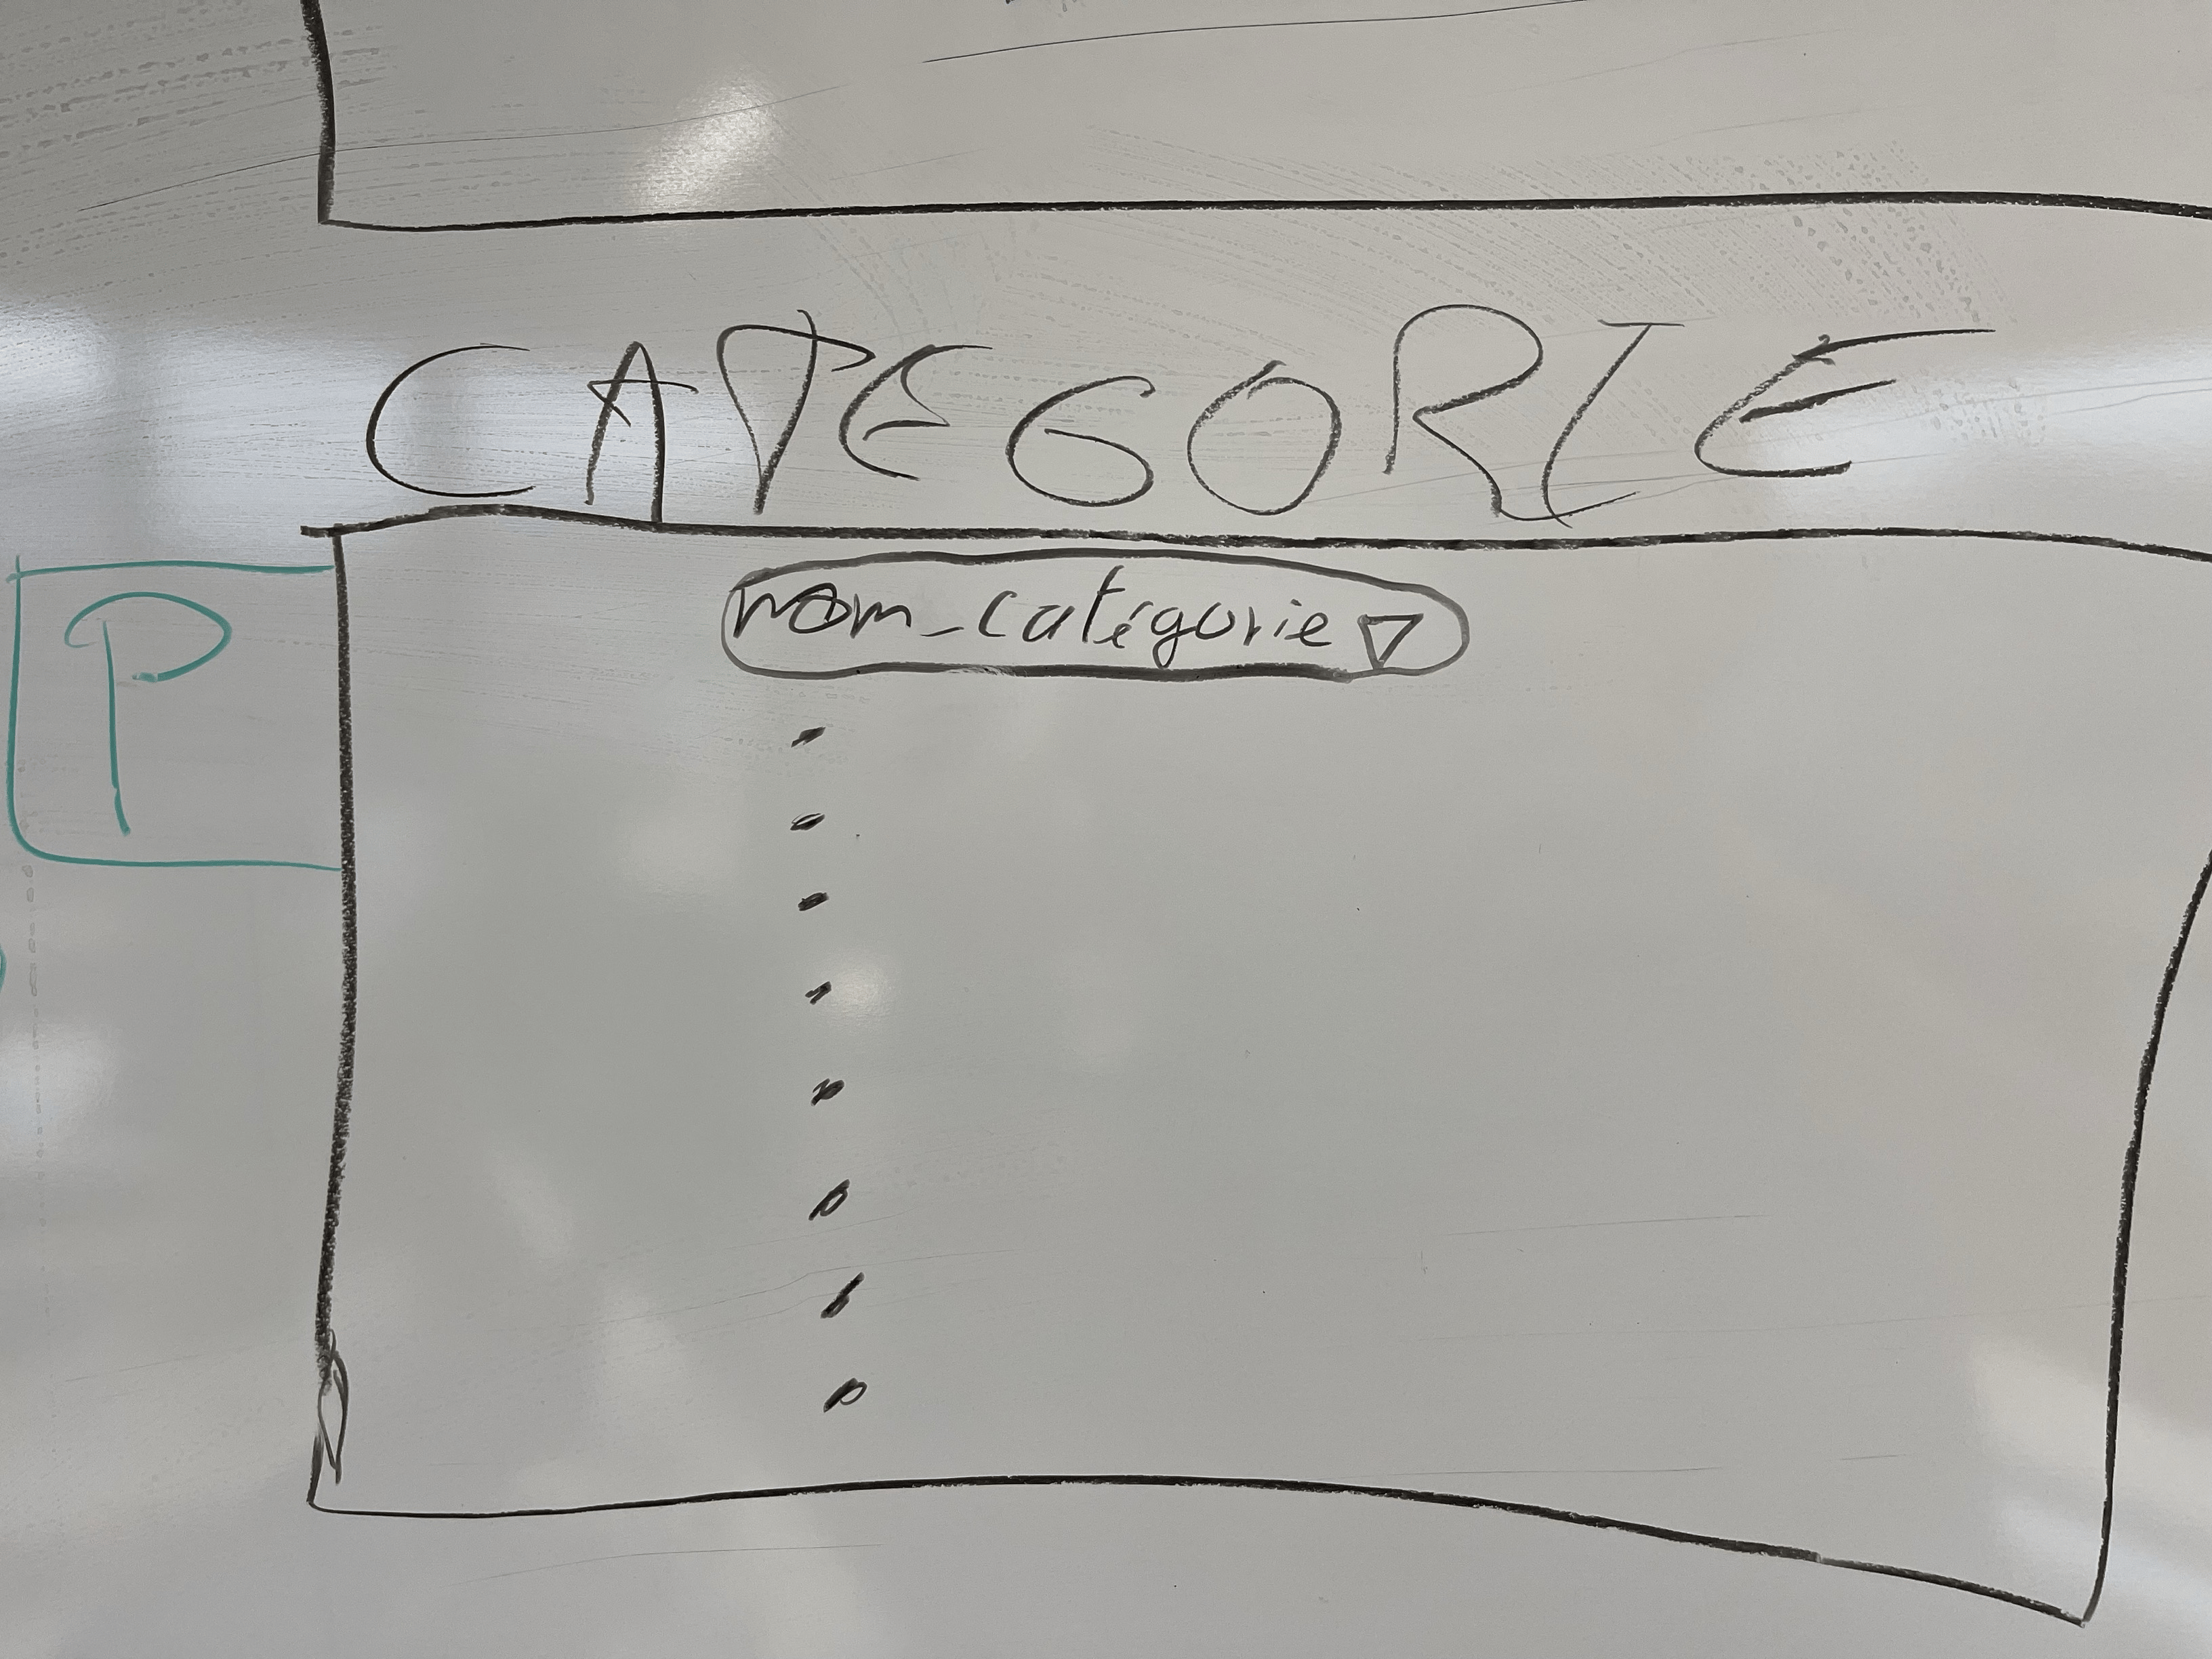 CATEGORIE
nom_catégorie ▽
P